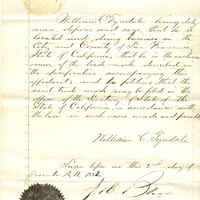 William C. Tyndale being duly
sworn, deposes and says, that he is
located and doing business in the
City and County of San Francisco
State of California, that he is the exclusive
owner of the trade-mark described in
the specification accompanying this
affidavit, and he petitions that the
said trade mark may be filed in the
Office of the Secretary of State of the
State of California, in accordance with
the law in such cases made and provided
William C. Tyndale
this 2nd day of
A.D. 18